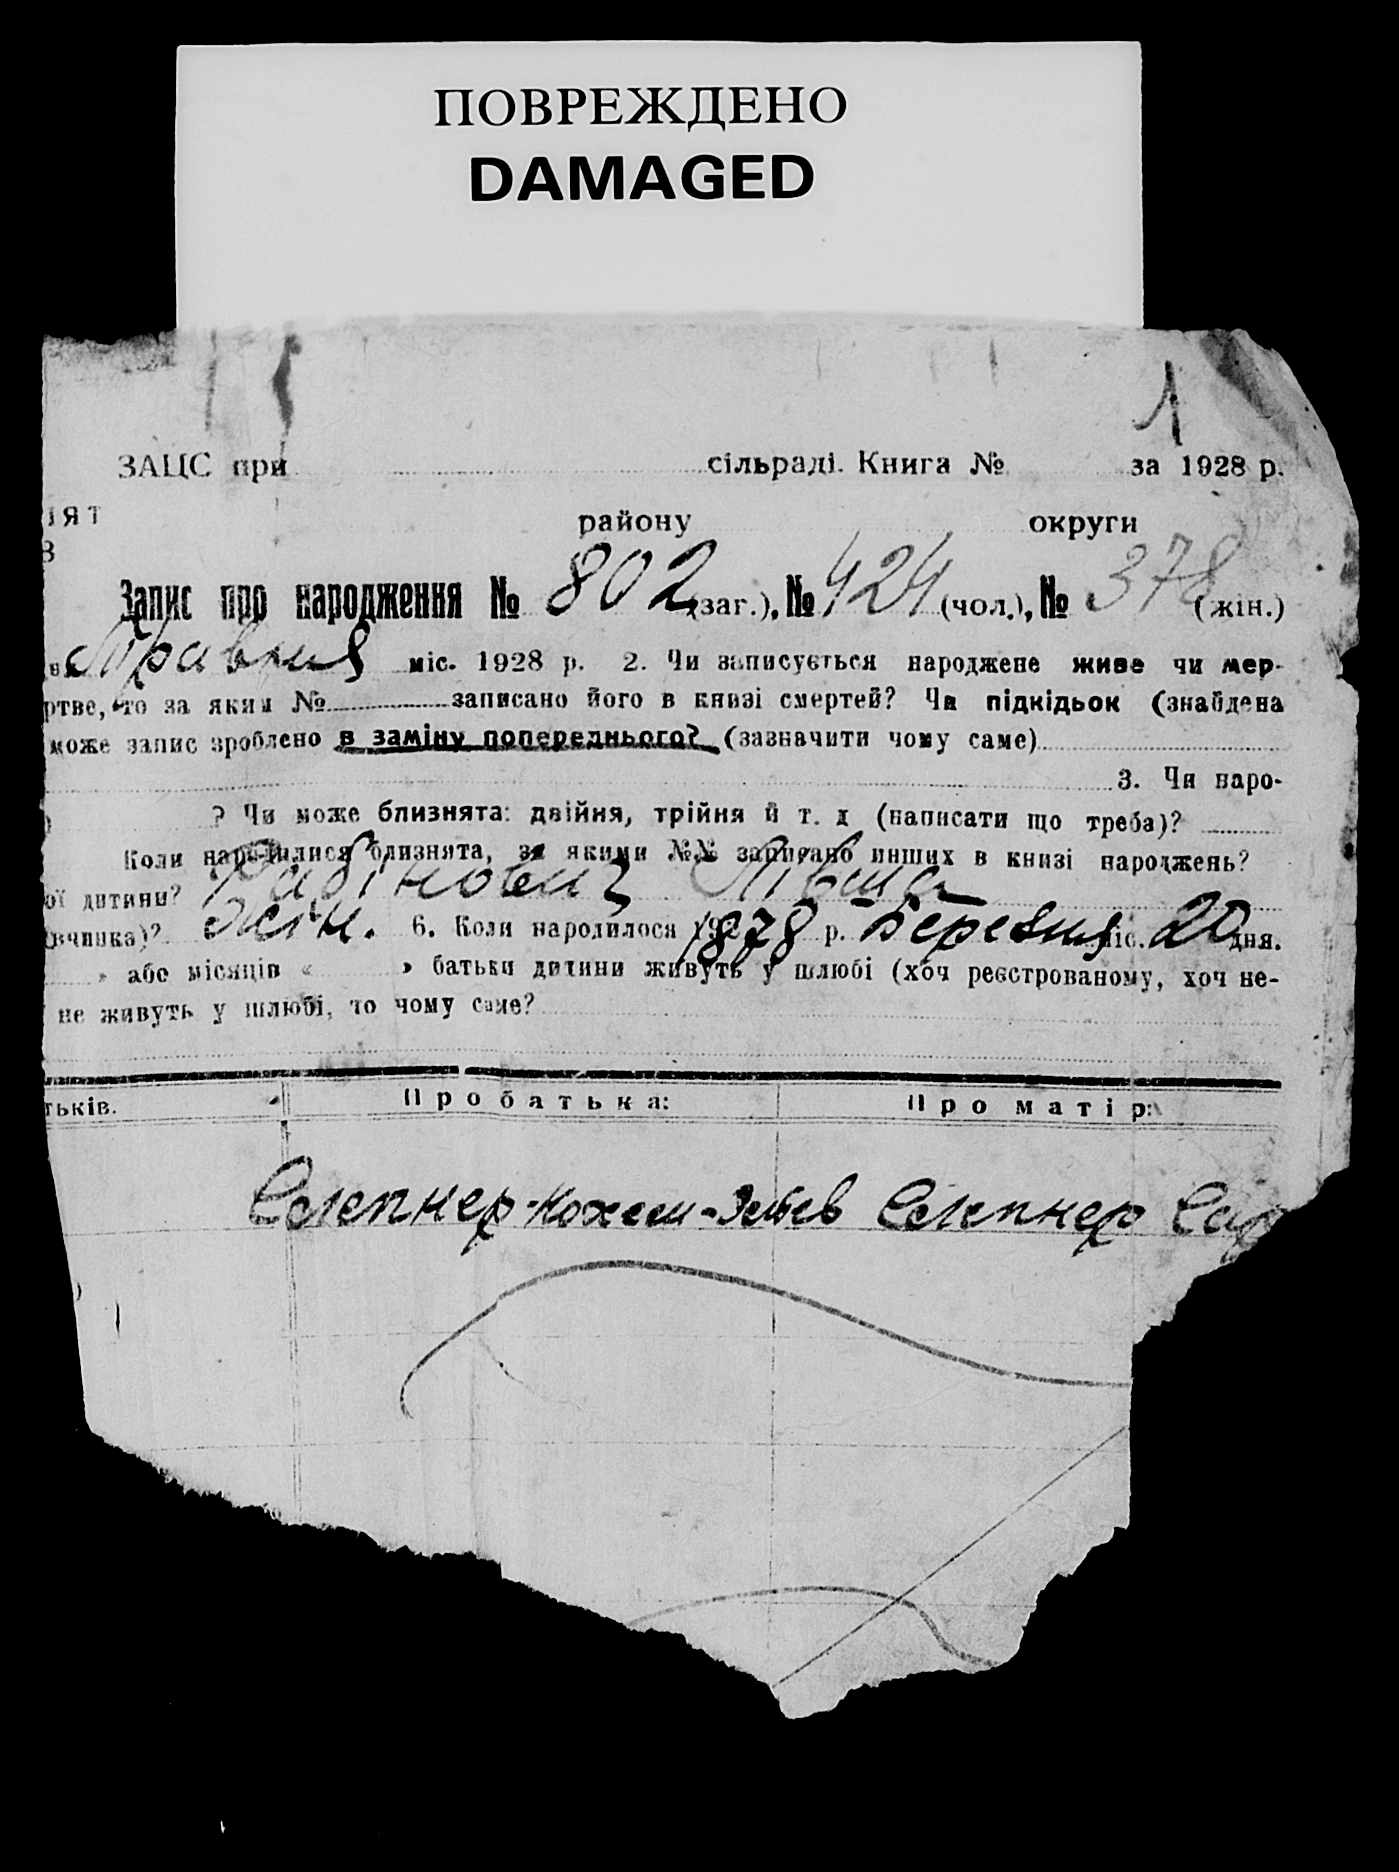 ПОВРЕЖДЕНО
DAMAGED
1
ЗАЦС при сільраді. Книга № за 1928 р.
району округи
Запис про народження № 802 (заг.), № 424 (чол.), № 378 (жін.)
Травня міс. 1928 р. 2. Чи записується народжене живе чи мер-
ртве, то за яким № записано його в книзі смертей? Чи підкідьок (знайдена
може запис зроблено в заміну попереднього? (зазначити чому саме)
3. Чи наро-
? Чи може близнята: двійня, трійня й т. д (написати що треба)?
Коли народилися близнята, за якими №№ записано инших в книзі народжень?
ої дитини? Рабінович
вчинка)? жін. 6. Коли народилося 1878 р. Березня міс. 20 дня.
» або місяців « » батьки дитини живуть у шлюбі (хоч реєстрованому, хоч не-
не живуть у шлюбі, то чому саме?
тьків. Про батька: Про матір: